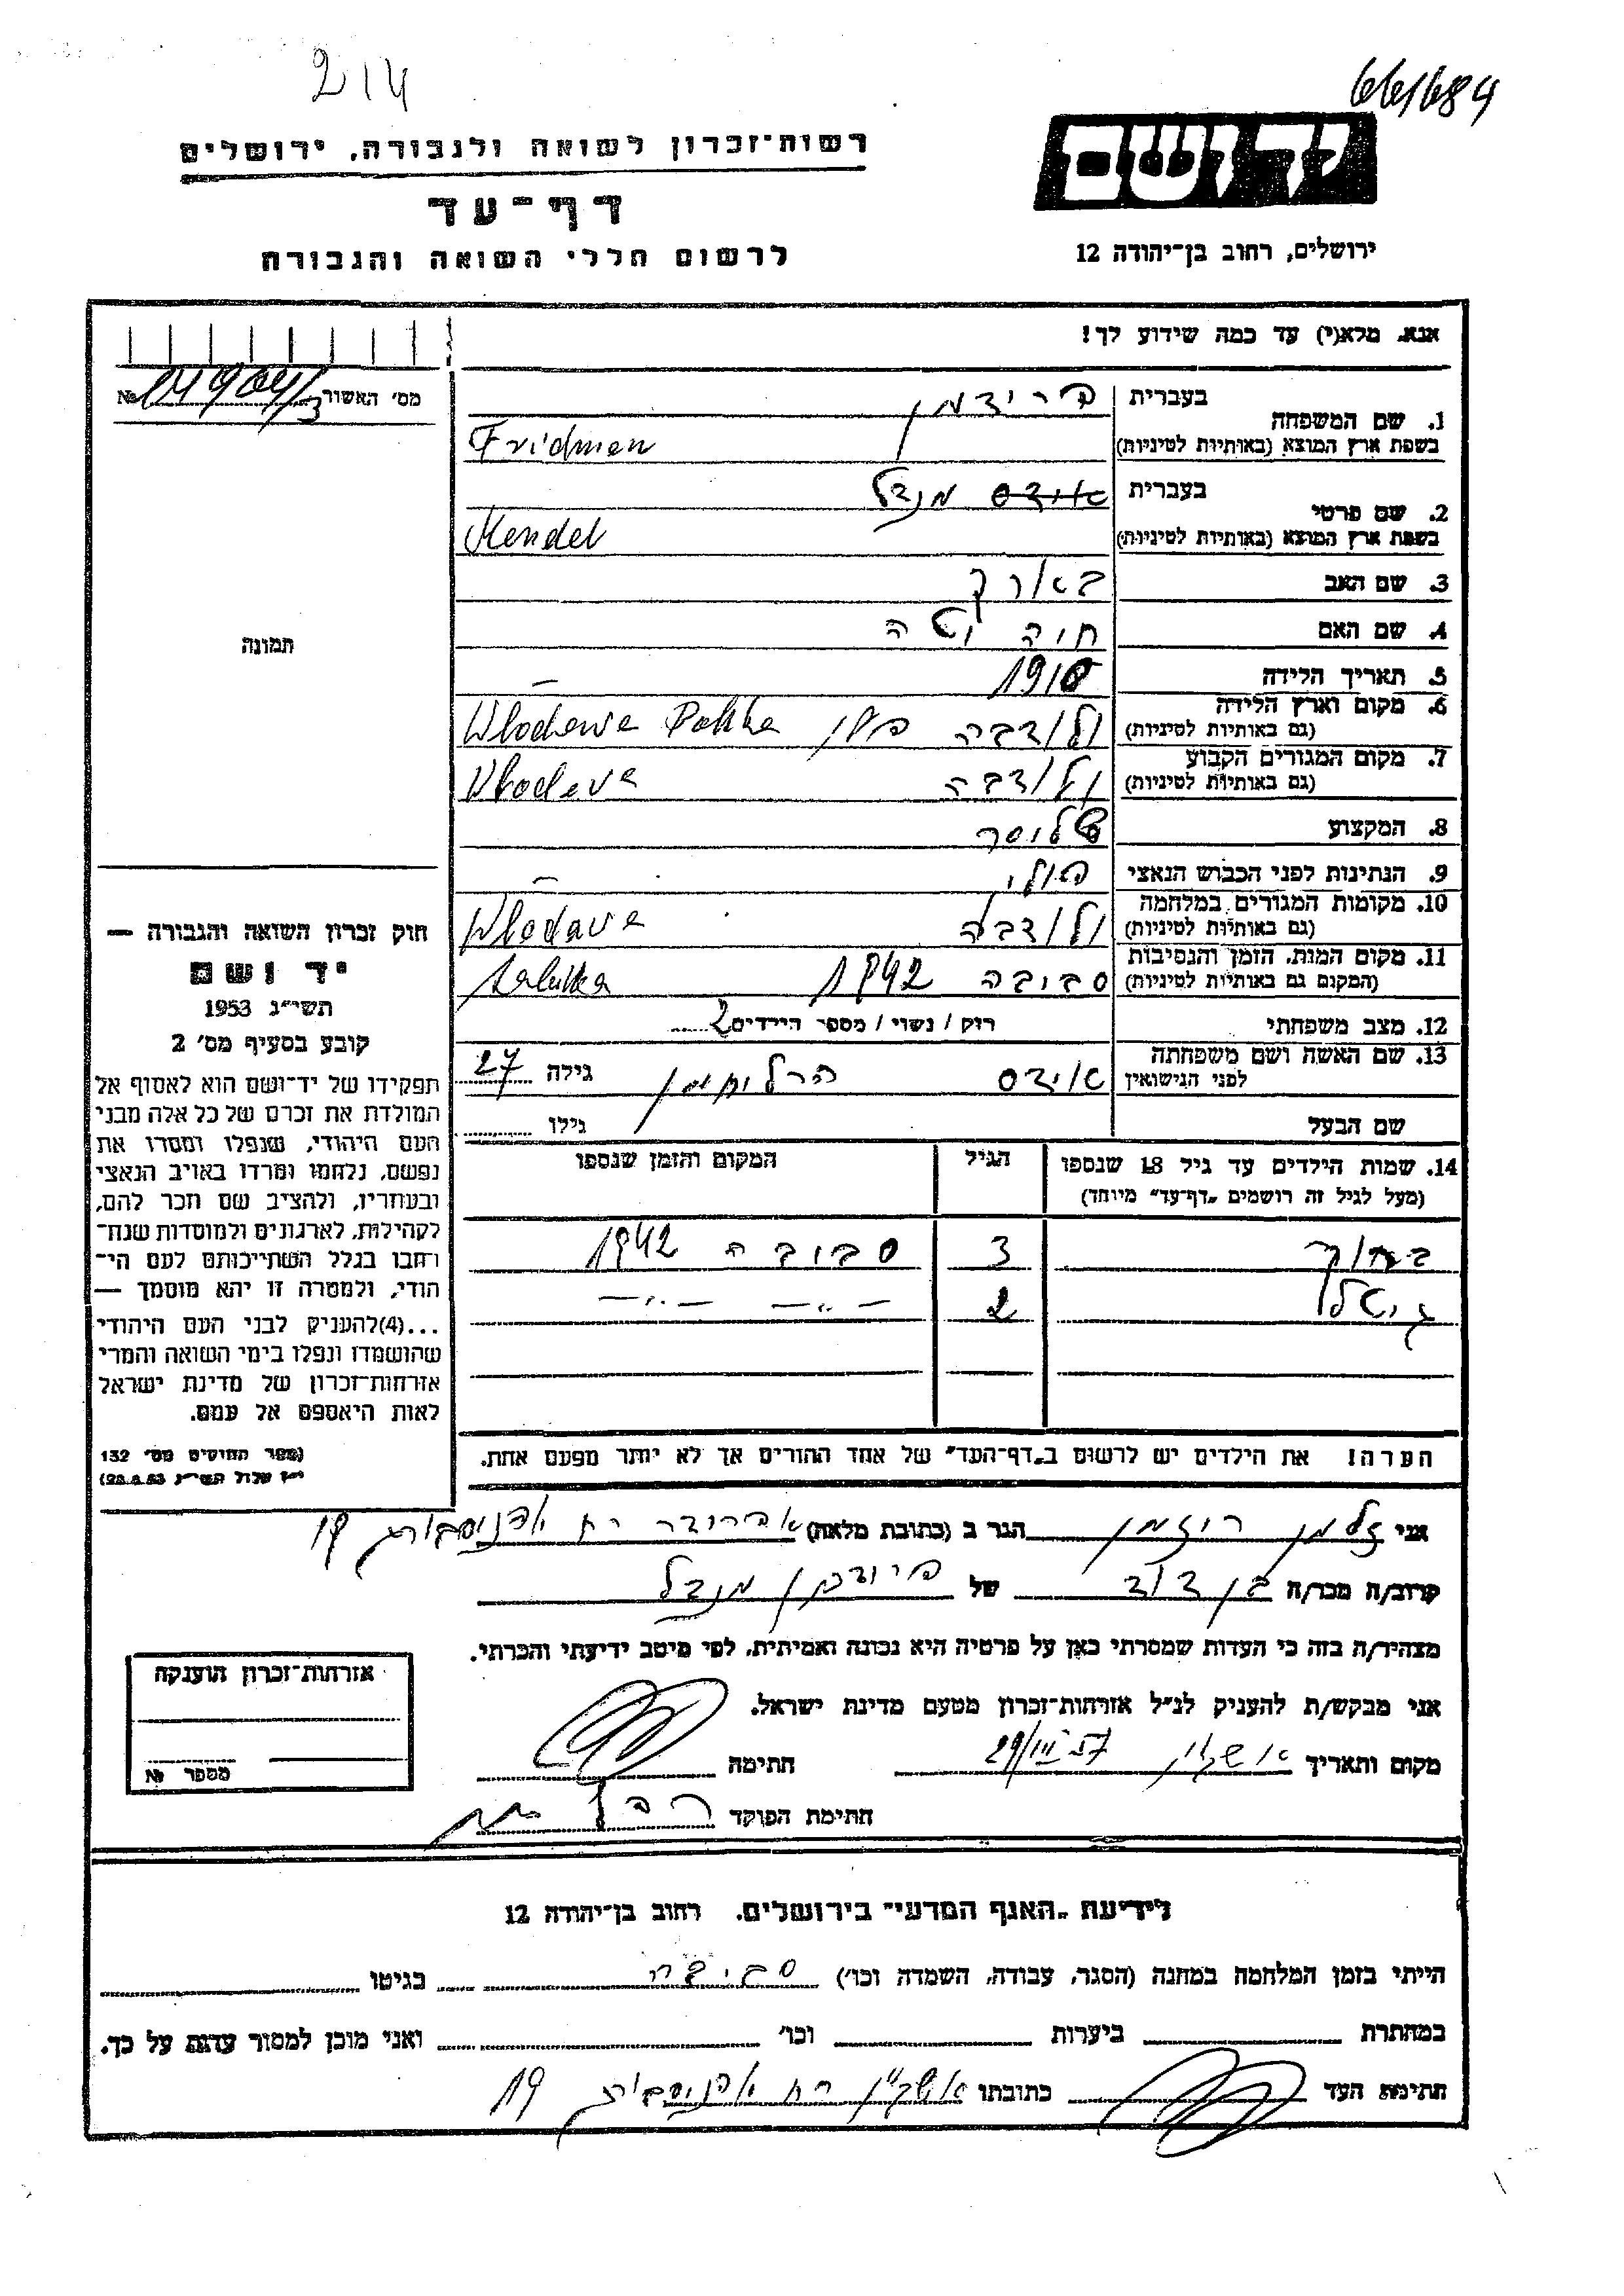 214
661684
רשות־זכרון לשואה ולגבורה, ירושלים
דף־עד
לרשום חללי השואה והגבורה
יד ושם
ירושלים, רחוב בן־יהודה 12
אנא, מלא(י) עד כמה שידוע לך!
מס׳ האשור №
1. שם המשפחה
בעברית פרידמן
בשפת ארץ המוצא (באותיות לטיניות) Fridman
2. שם פרטי
בעברית אידס מנדל
בשפת ארץ המוצא (באותיות לטיניות) Mendel
3. שם האב
4. שם האם חיה
5. תאריך הלידה 1910 —
6. מקום וארץ הלידה (גם באותיות לטיניות) ולודבה פולין Wlodawa Polska
7. מקום המגורים הקבוע (גם באותיות לטיניות) ולודבה Wlodava
8. המקצוע שלוסר
9. הנתינות לפני הכבוש הנאצי פולני —
10. מקומות המגורים במלחמה (גם באותיות לטיניות) ולודבה Wlodava
11. מקום המות, הזמן והנסיבות (המקום גם באותיות לטיניות) סביבה 1942
12. מצב משפחתי רוק / נשוי / מספר הילדים 2
13. שם האשה ושם משפחתה לפני הנישואין אידס גילה 27
שם הבעל גילו
14. שמות הילדים עד גיל 18 שנספו (מעל לגיל זה רושמים „דף־עד״ מיוחד) הגיל המקום והזמן שנספו
ברוך 3 סביבה 1942
2 — ״ — — ״ —
הערה! את הילדים יש לרשום ב„דף־העד״ של אחד ההורים אך לא יותר מפעם אחת.
תמונה
חוק זכרון השואה והגבורה —
יד ושם
תשי״ג 1953
קובע בסעיף מס׳ 2
תפקידו של יד־ושם הוא לאסוף אל
המולדת את זכרם של כל אלה מבני
העם היהודי, שנפלו ומסרו את
נפשם, נלחמו ומרדו באויב הנאצי
ובעוזריו, ולהציב שם וזכר להם,
לקהילות, לארגונים ולמוסדות שנח־
רבו בגלל השתייכותם לעם הי־
הודי, ולמטרה זו יהא מוסמך —
...(4)להעניק לבני העם היהודי
שהושמדו ונפלו בימי השואה והמרי
אזרחות־זכרון של מדינת ישראל
לאות היאספם אל עמם.
(ספר החוקים מס׳ 132
י״ז אלול תשי״ג 28.8.53)
אני זלמן רוזמן הגר ב (כתובת מלאה) רח 19
קרוב/ה מכר/ה בן דוד של פרידמן מנדל
מצהיר/ה בזה כי העדות שמסרתי כאן על פרטיה היא נכונה ואמיתית, לפי מיטב ידיעתי והכרתי.
אני מבקש/ת להעניק לנ״ל אזרחות־זכרון מטעם מדינת ישראל.
מקום ותאריך אשקלון 29/III 57 חתימה
חתימת הפוקד
אזרחות־זכרון הוענקה
מספר №
לידיעת „האגף המדעי״ בירושלים, רחוב בן־יהודה 12
הייתי בזמן המלחמה במחנה (הסגר, עבודה, השמדה וכו׳) סביבה בגיטו
במחתרת ביערות וכו׳ ואני מוכן למסור עדות על כך.
חתימת העד כתובתו אשקלון רח 19